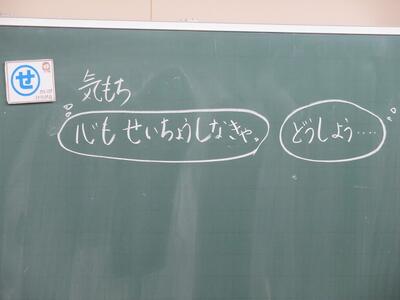 せ
気もち
心も せいちょうしなきゃ。
どうしよう・・・・・